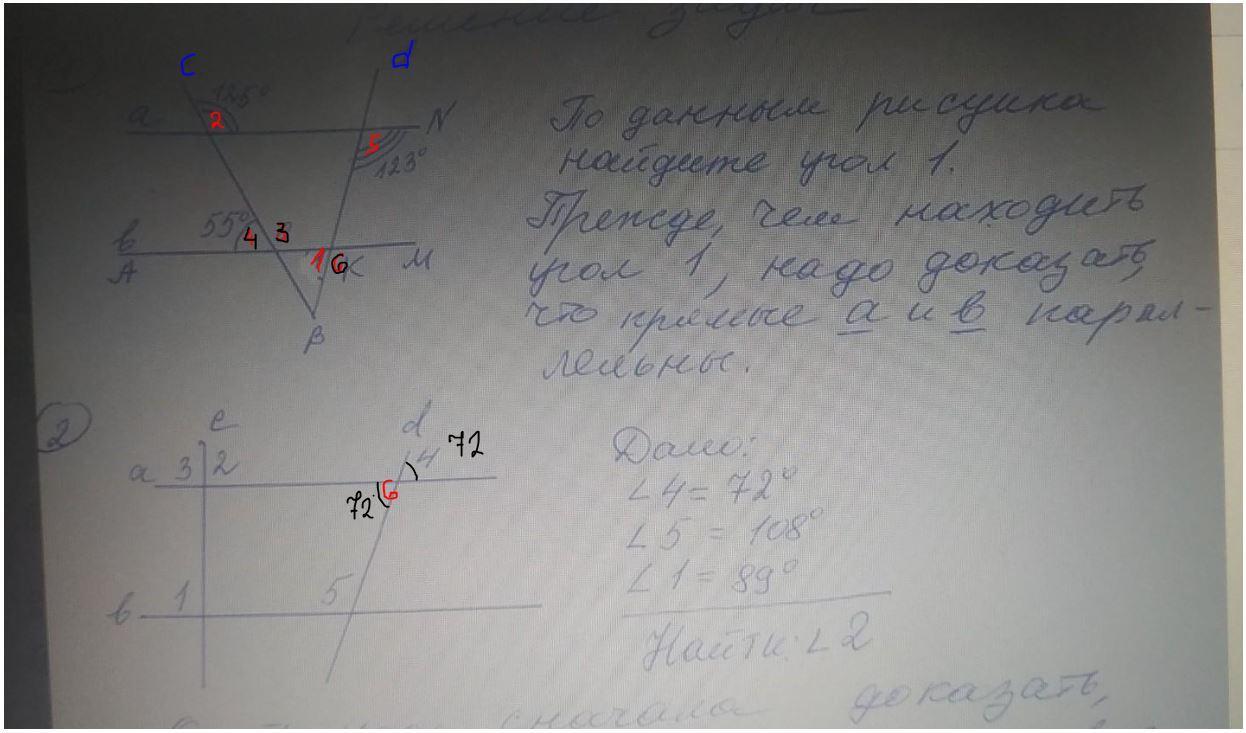 Решение задач
c
d
125°
a
2
N
5
123°
55°
4
3
в
A
1
6
K
M
B
По данным рисунка
найдите угол 1.
Прежде, чем находить
угол 1, надо доказать,
что прямые а и в парал-
лельны.
2
c
d
a
3
2
4
72
6
72
в
1
5
Дано:
∠4 = 72°
∠5 = 108°
∠1 = 89°
Найти: ∠2
сначала доказать,